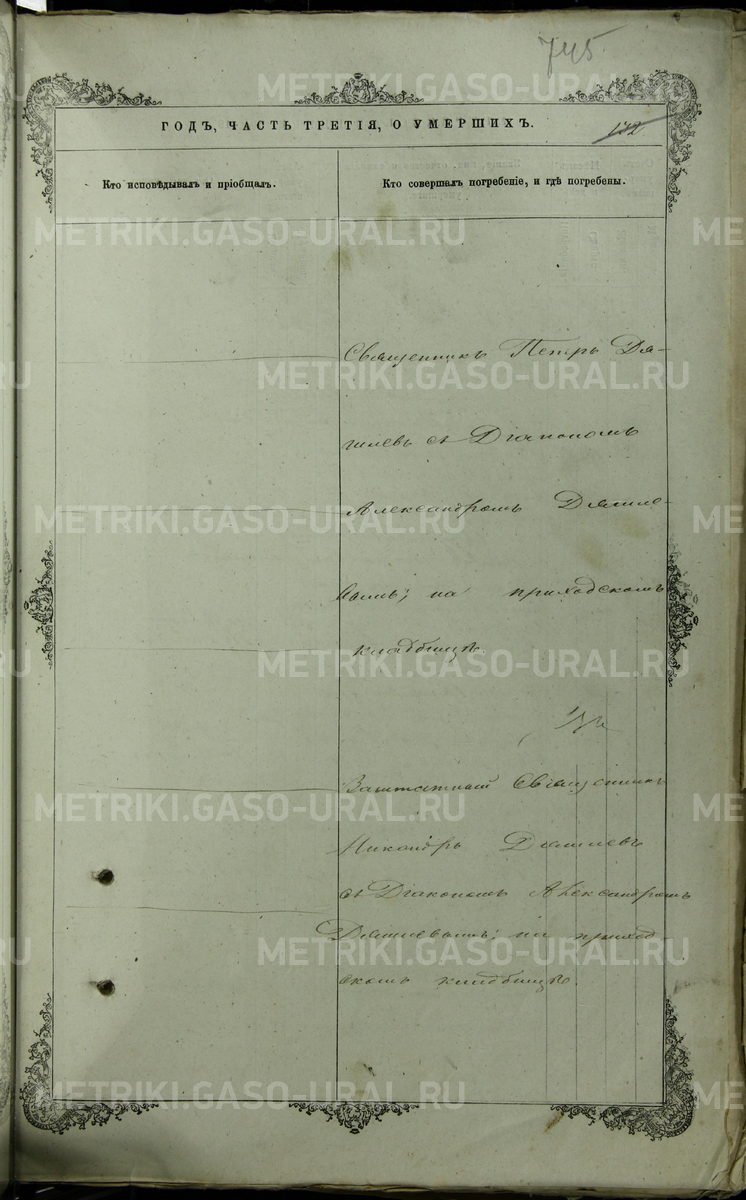 745.
132
ГОДЪ, ЧАСТЬ ТРЕТІЯ, О УМЕРШИХЪ.
Кто исповѣдывалъ и пріобщалъ.
Кто совершалъ погребеніе, и гдѣ погребены.
Священникъ Петръ Дя-
гилевъ съ Діакономъ
Александромъ Дягиле-
вымъ; на приходскомъ
кладбищѣ.
Заштатный Священникъ
Никандръ Дягилевъ
съ Діакономъ Александромъ
Дягилевымъ; на приход-
скомъ кладбищѣ.
METRIKI.GASO-URAL.RU